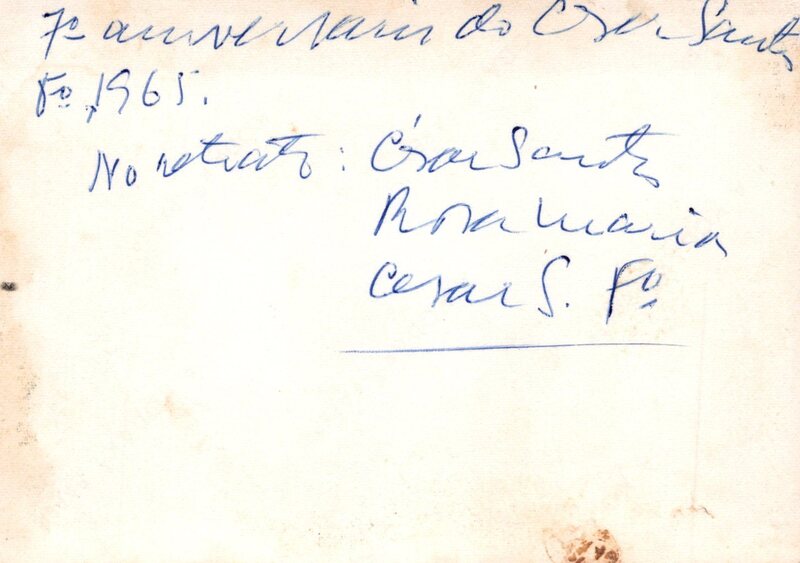 7º aniversario do César Santos
Fº, 1965.
No retrato: César Santos
Rosa Maria
Cesar S. Fº